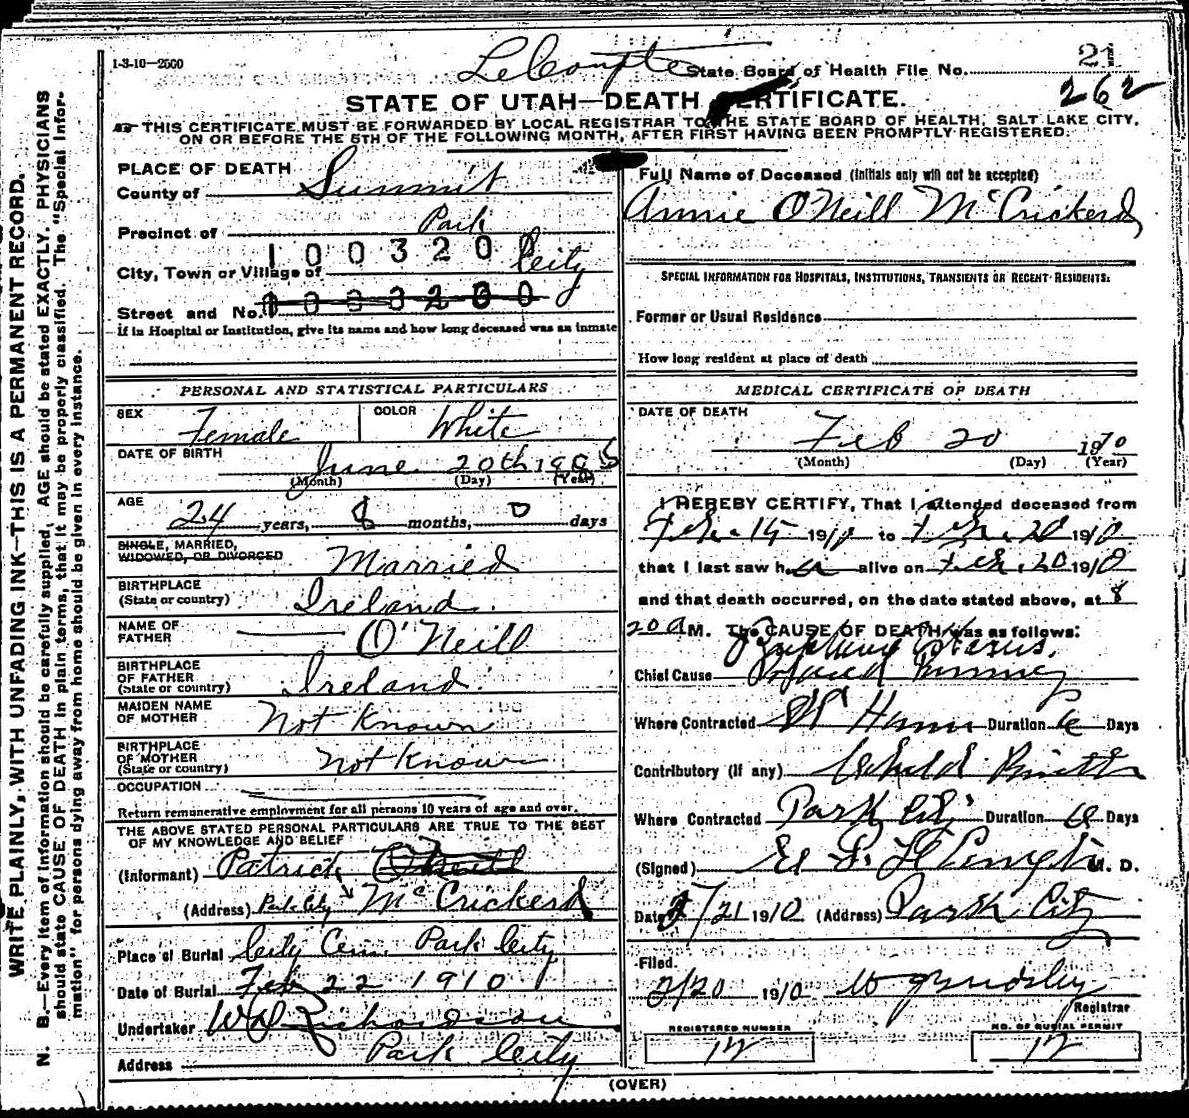 1-3-10—2500
LeCompte
State Board of Health File No. 21
262
STATE OF UTAH—DEATH CERTIFICATE.
THIS CERTIFICATE MUST BE FORWARDED BY LOCAL REGISTRAR TO THE STATE BOARD OF HEALTH, SALT LAKE CITY,
ON OR BEFORE THE 5TH OF THE FOLLOWING MONTH, AFTER FIRST HAVING BEEN PROMPTLY REGISTERED.
WRITE PLAINLY, WITH UNFADING INK—THIS IS A PERMANENT RECORD.
N. B.—Every item of information should be carefully supplied, AGE should be stated EXACTLY. PHYSICIANS
should state CAUSE OF DEATH in plain terms, that it may be properly classified. The "Special Infor-
mation" for persons dying away from home should be given in every instance.
PLACE OF DEATH
County of Summit
Precinct of Park
1003200
City, Town or Village of City
Street and No.
If in Hospital or Institution, give its name and how long deceased was an inmate
PERSONAL AND STATISTICAL PARTICULARS
SEX Female COLOR White
DATE OF BIRTH June 20th
(Month) (Day) (Year)
AGE 24 years, 8 months, 0 days
SINGLE, MARRIED,
WIDOWED, OR DIVORCED Married
BIRTHPLACE
(State or country) Ireland.
NAME OF
FATHER O'Neill
BIRTHPLACE
OF FATHER
(State or country) Ireland.
MAIDEN NAME
OF MOTHER Not Known
BIRTHPLACE
OF MOTHER
(State or country) Not Known
OCCUPATION
Return remunerative employment for all persons 10 years of age and over.
THE ABOVE STATED PERSONAL PARTICULARS ARE TRUE TO THE BEST
OF MY KNOWLEDGE AND BELIEF
(Informant) Patrick O'Neill
(Address) Park City McCrickerd
Place of Burial City Cem. Park City
Date of Burial Feb 22 1910
Undertaker W D Richardson
Address Park City
Full Name of Deceased (Initials only will not be accepted)
Annie O'Neill McCrickerd
SPECIAL INFORMATION FOR HOSPITALS, INSTITUTIONS, TRANSIENTS OR RECENT RESIDENTS:
Former or Usual Residence
How long resident at place of death
MEDICAL CERTIFICATE OF DEATH
DATE OF DEATH
Feb 20 1910
(Month) (Day) (Year)
I HEREBY CERTIFY, That I attended deceased from
Feb. 15 1910 to Feb. 20 1910
that I last saw her alive on Feb. 20 1910
and that death occurred, on the date stated above, at 8
20 A M. The CAUSE OF DEATH was as follows:
Chief Cause
Where Contracted At Home Duration 6 Days
Contributory (if any) Child Birth
Where Contracted Park City Duration 6 Days
(Signed) M. D.
Date 2/21 1910 (Address) Park City
Filed
2/20 1910
Registrar
REGISTERED NUMBER
12
NO. OF BURIAL PERMIT
12
(OVER)